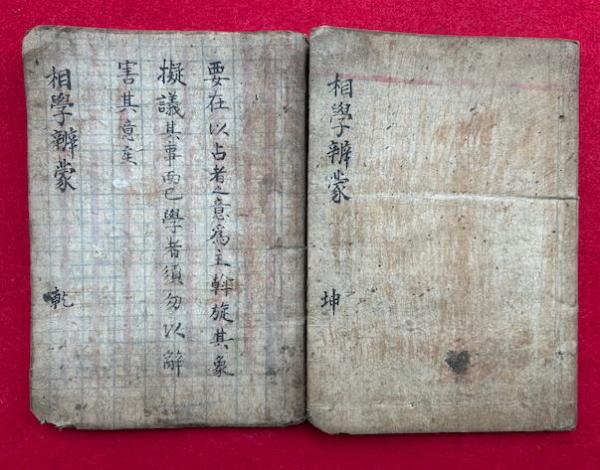 要在以占者之意為主斡旋其象
擬議其事而已學者須勿以辭
害其意矣
相學辨蒙
乾
相學辨蒙
坤